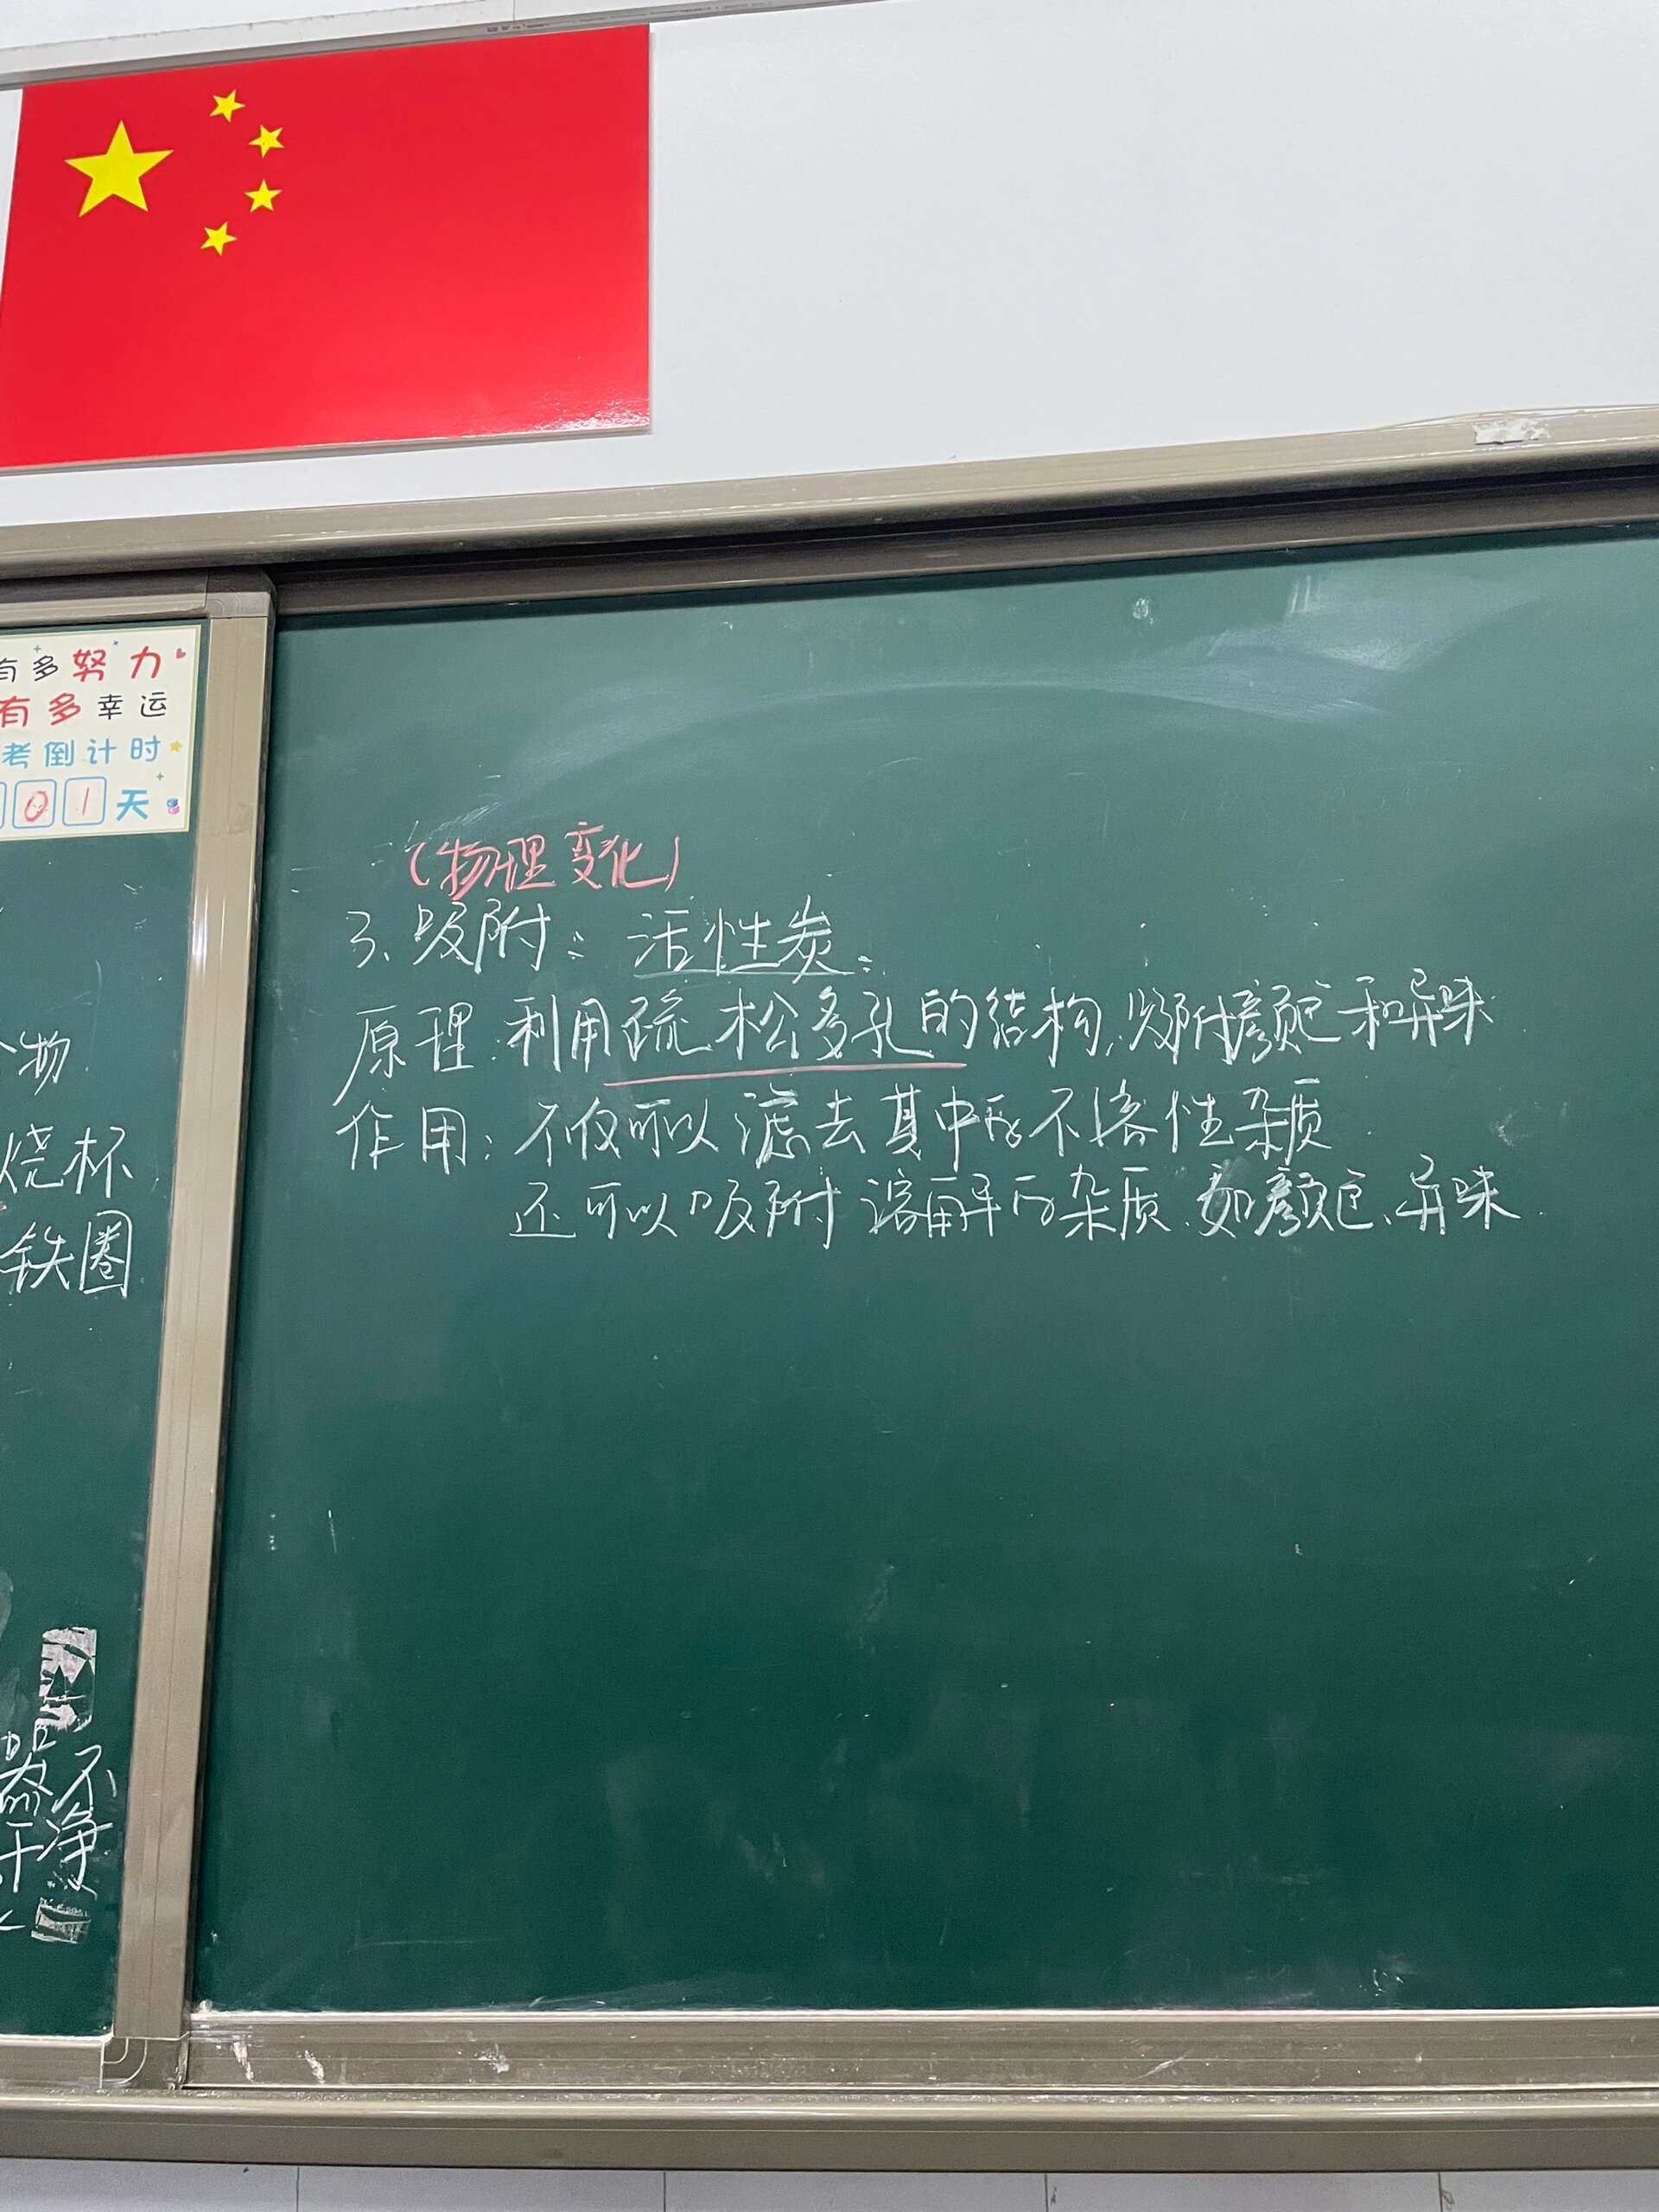 有多努力
有多幸运
考倒计时
01天
物
烧杯
铁圈
器不
干净
(物理变化)
3、吸附：活性炭：
原理：利用疏松多孔的结构，吸附颜色和异味
作用：不仅可以滤去其中的不溶性杂质
还可以吸附溶解的杂质、如颜色、异味.